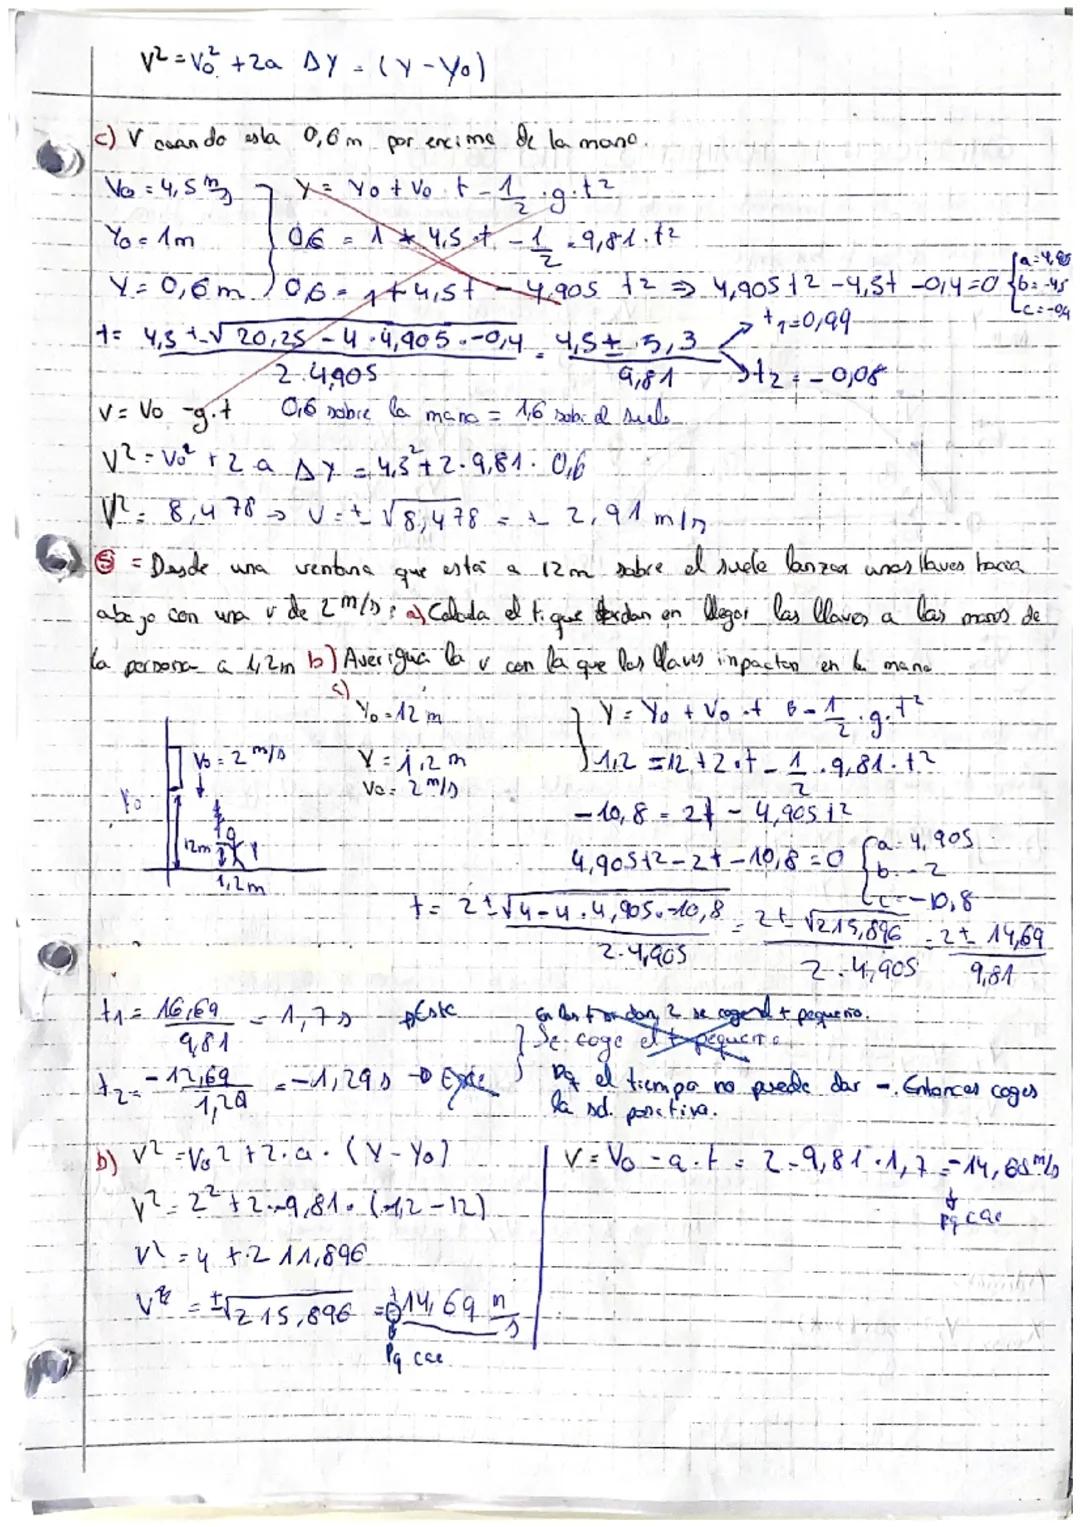 V² = V₀² + 2a Δy = (Y - Y₀)
c) V cuando esta 0,6 m por encima de la mano.
V₀ = 4,5 m/s } Y = Y₀ + V₀ · t - 1/2 · g · t²
Y₀ = 1m 0,6 = 1 + 4,5 · t - 1/2 · 9,81 · t²
Y = 0,6 m 0,6 = 1 + 4,5t - 4,905 t² ⇒ 4,905 t² - 4,5t - 0,4 = 0 { a = 4,905 b = -4,5 c = -0,4
t = 4,5 ± √20,25 - 4 · 4,905 · -0,4 / 2 · 4,905 = 4,5 ± 5,3 / 9,81 → t₁ = 0,99
t₂ = -0,08
V = V₀ - g · t 0,6 sobre la mano = 1,6 sob. el suelo
V² = V₀² + 2 · a Δy = 4,5² + 2 · 9,81 · 0,6
V² = 8,478 → V = ± √8,478 = ± 2,91 m/s
⑤ = Desde una ventana que está a 12m sobre el suelo lanzan unas llaves hacia
abajo con una v de 2 m/s: a) Calcula el t. que tardan en llegar las llaves a las manos de
la persona a 1,2m b) Averigua la v con la que las llaves inpactan en la mano
a)
Y₀ = 12 m } Y = Y₀ + V₀ · t - 1/2 · g · t²
V₀ = 2 m/s Y = 1,2 m 1,2 = 12 + 2 · t - 1/2 · 9,81 · t²
V₀ = 2 m/s
Y₀ -10,8 = 2t - 4,905 t²
12m Y 4,905 t² - 2t - 10,8 = 0 { a = 4,905 b = -2 c = -10,8
1,2m
t = 2 ± √4 - 4 · 4,905 · -10,8 / 2 · 4,905 = 2 ± √215,896 / 2 · 4,905 = 2 ± 14,69 / 9,81
t₁ = 16,69 / 9,81 = 1,7 s → Este
En los t se dan 2 se coge el t pequeño.
Se coge el t pequeño
t₂ = -12,69 / 1,29 = -1,29 s → Este
Pq el tiempo no puede dar -. Entonces coges
la sol. positiva.
b) V² = V₀² + 2 · a · (Y - Y₀) V = V₀ - a · t = 2 - 9,81 · 1,7 = -14,68 m/s
V² = 2² + 2 · -9,81 · (1,2 - 12) Pq cae
V² = 4 + 211,896
V = ± √215,896 = 14,69 m/s
Pq cae